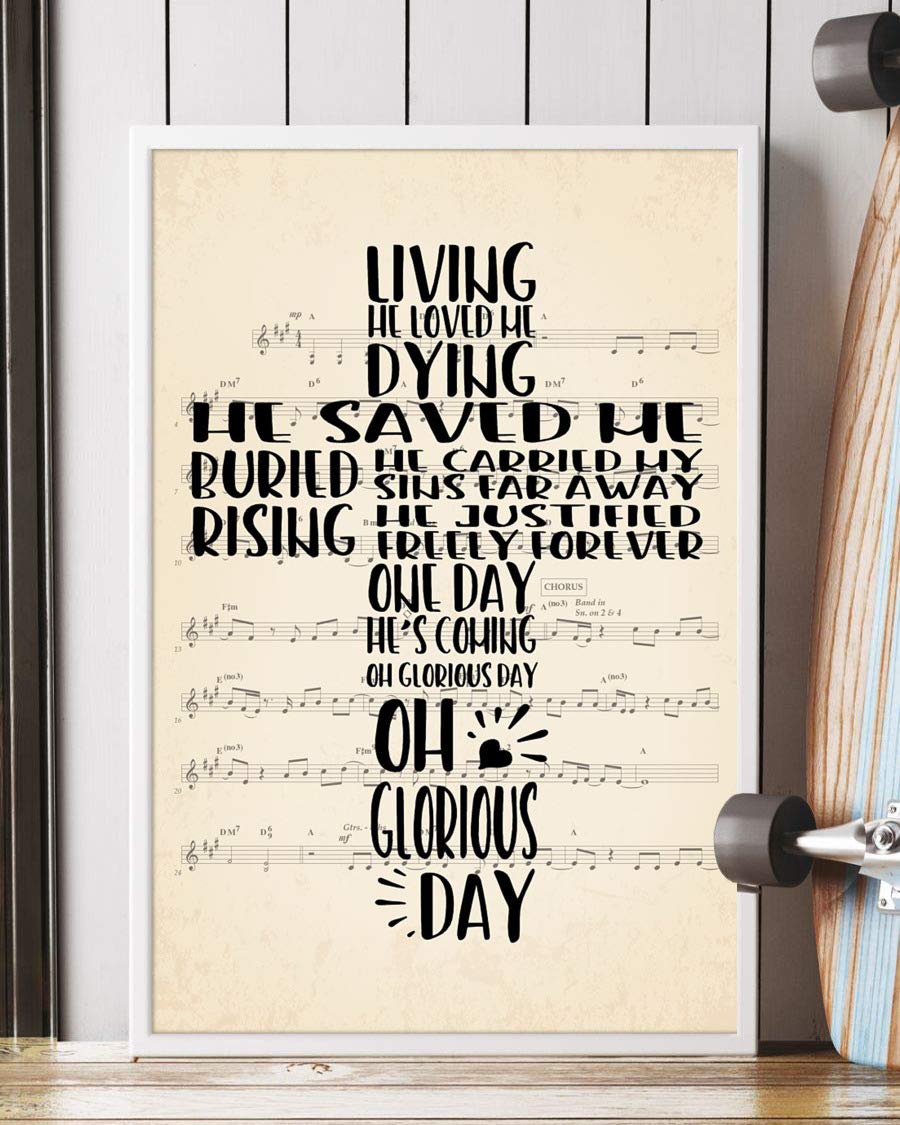 LIVING
HE LOVED ME
DYING
HE SAVED ME
BURIED HE CARRIED MY
SINS FAR AWAY
RISING HE JUSTIFIED
FREELY FOREVER
ONE DAY
HE'S COMING
OH GLORIOUS DAY
OH
GLORIOUS
DAY
mp A A
4
DM7 D6 A DM7 D6
7
10
CHORUS
F♯m A (no3) Band in
Sn. on 2 & 4
mf
13
E (no3) A (no3)
16
E (no3) A
20
DM7 D6/9 A mf A
24